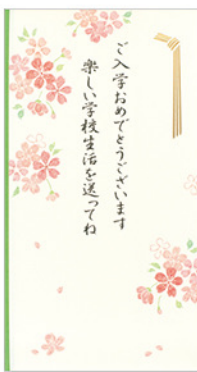 ご入学おめでとうございます
楽しい学校生活を送ってね